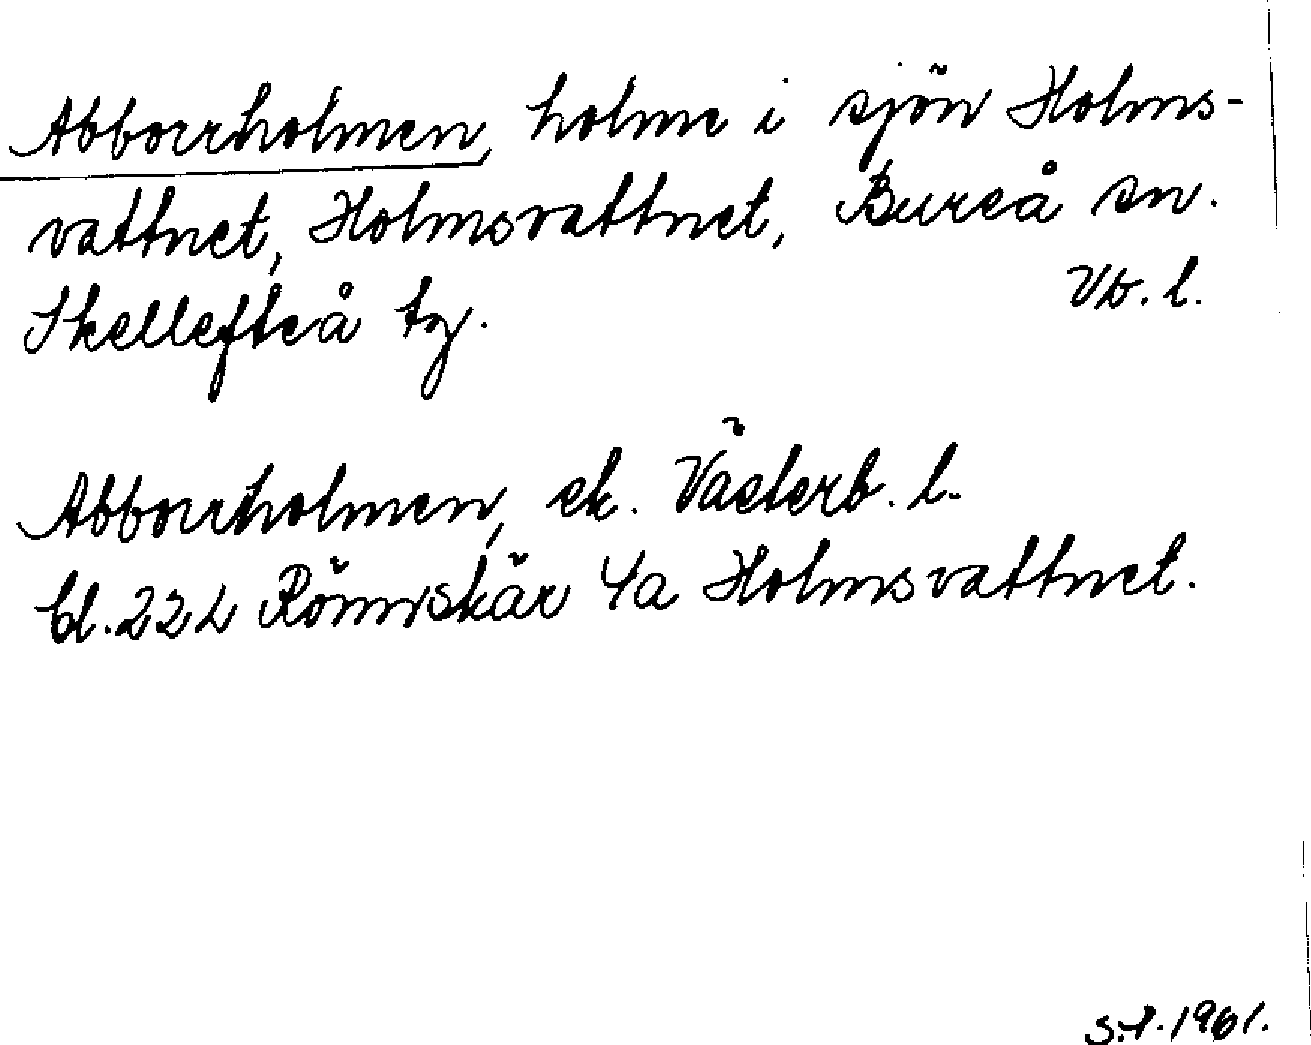 Abborrholmen, holme i sjön Holms-
vattnet, Holmsvattnet, Bureå sn.
Skellefteå tg. Vb. l.
Abborrholmen, ek. Västerb. l.
bl. 22 L Rönnskär 4a Holmsvattnet.
1961.